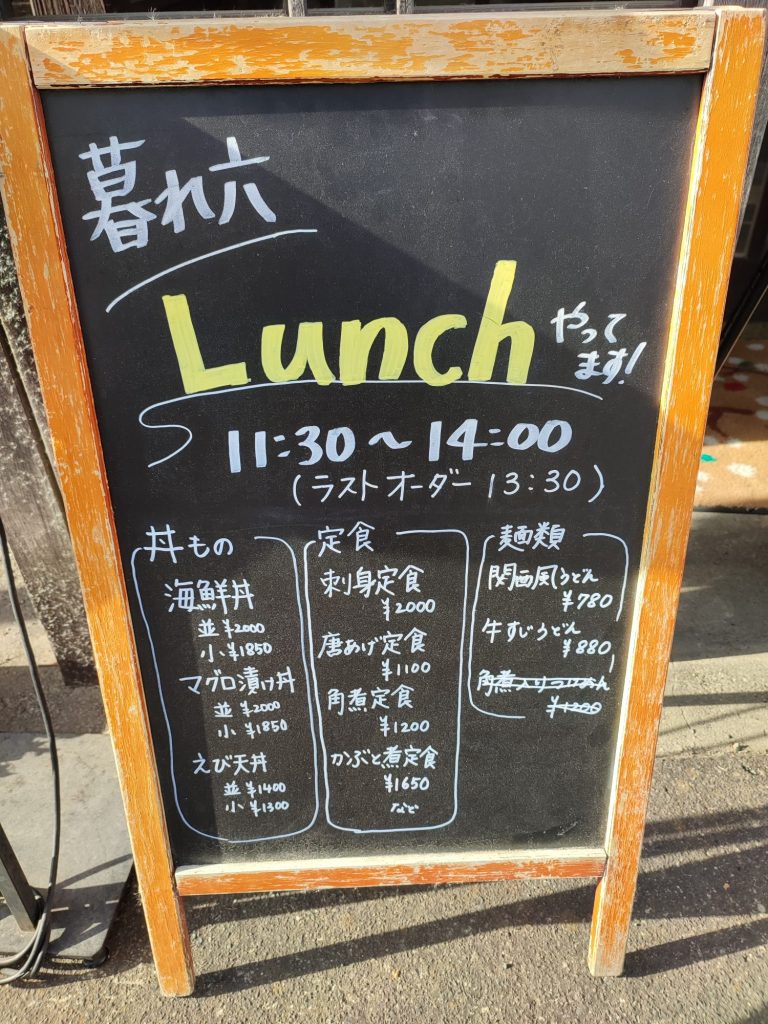 暮れ六
Lunch やってます!
11:30〜14:00
(ラストオーダー 13:30)
丼もの
海鮮丼
並 ¥2000
小 ¥1850
マグロ漬け丼
並 ¥2000
小 ¥1850
えび天丼
並 ¥1400
小 ¥1300
定食
刺身定食
¥2000
唐あげ定食
¥1100
角煮定食
¥1200
かぶと煮定食
¥1650
など
麺類
関西風うどん
¥780
牛すじうどん
¥880
角煮入り
¥1200